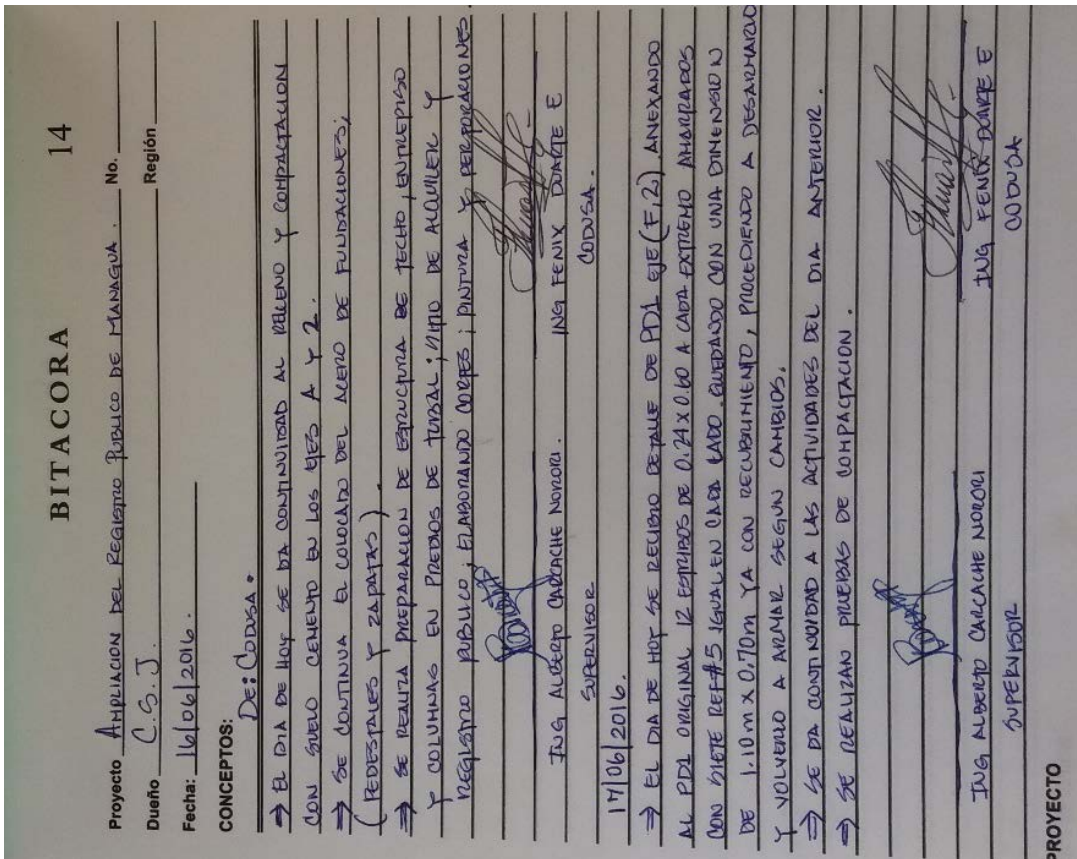 BITACORA 14
Proyecto AMPLIACION DEL REGISTRO PUBLICO DE MANAGUA. No.
Dueño C.S.J. Región
Fecha: 16/06/2016.
CONCEPTOS:
DE: CODUSA.
⇒ EL DIA DE HOY SE DA CONTINUIDAD AL RELLENO Y COMPACTACION
CON SUELO CEMENTO EN LOS EJES A Y 2.
⇒ SE CONTINUA EL COLOCADO DEL ACERO DE FUNDACIONES;
(PEDESTALES Y ZAPATAS)
⇒ SE REALIZA PREPARACION DE ESTRUCTURA DE TECHO, ENTREPISO
Y COLUMNAS EN PREDIOS DE TURSAL; SITIO DE ALQUILER Y
REGISTRO PUBLICO, ELABORANDO CORTES; PINTURA Y PERFORACIONES.
ING ALBERTO CARCACHE NORORI. ING FENIX DUARTE E
SUPERVISOR CODUSA.
17/06/2016.
⇒ EL DIA DE HOY SE RECIBIO DETALLE DE PD1 EJE (F,2) ANEXANDO
AL PD1 ORIGINAL 12 ESTRIBOS DE 0.24 x 0.60 A CADA EXTREMO AMARRADOS
CON SIETE REF#5 IGUAL EN CADA LADO. QUEDANDO CON UNA DIMENSION
DE 1.10m x 0.70m YA CON RECUBRIMIENTO, PROCEDIENDO A DESARMARLO
Y VOLVERLO A ARMAR SEGUN CAMBIOS.
⇒ SE DA CONTINUIDAD A LAS ACTIVIDADES DEL DIA ANTERIOR.
⇒ SE REALIZAN PRUEBAS DE COMPACTACION.
ING ALBERTO CARCACHE NORORI ING FENIX DUARTE E
SUPERVISOR CODUSA
PROYECTO